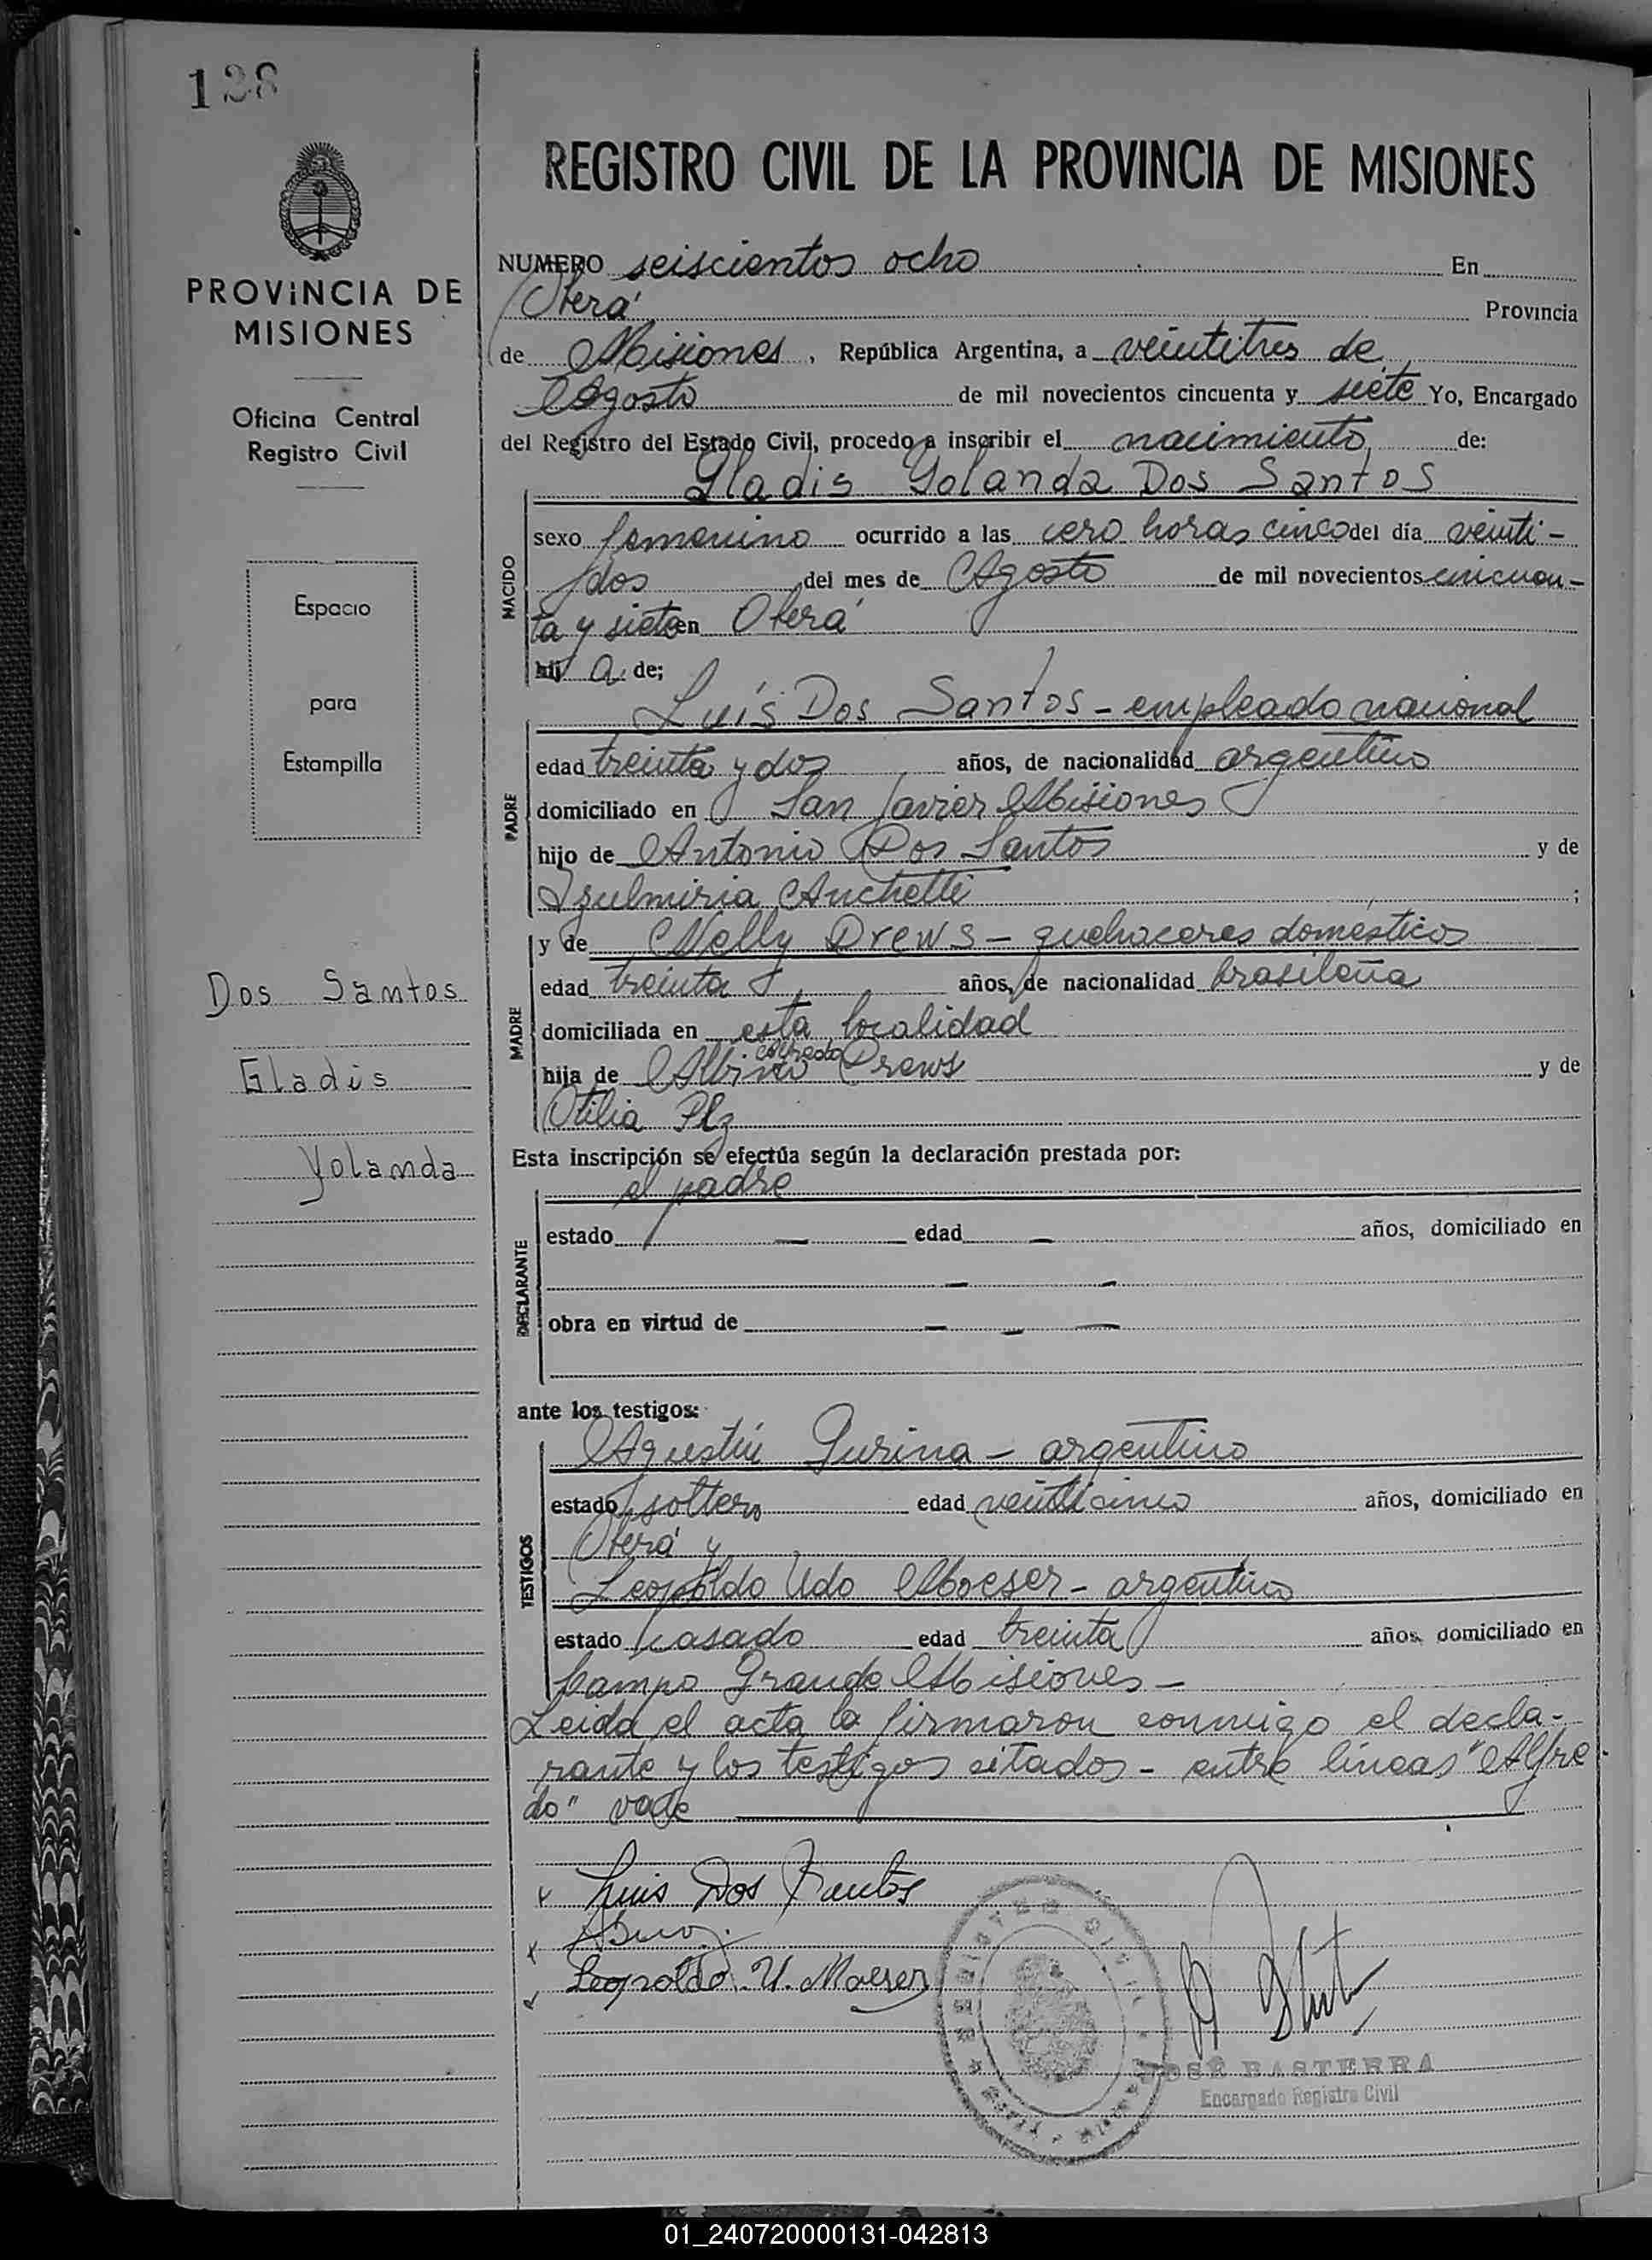 128
PROVINCIA DE
MISIONES
Oficina Central
Registro Civil
Espacio
para
Estampilla
Dos Santos
Gladis
Yolanda
REGISTRO CIVIL DE LA PROVINCIA DE MISIONES
NUMERO seiscientos ocho En
Oberá Provincia
de Misiones, República Argentina, a veintitres de
Agosto de mil novecientos cincuenta y siete Yo, Encargado
del Registro del Estado Civil, procedo a inscribir el nacimiento de:
Gladis Yolanda Dos Santos
NACIDO
sexo femenino ocurrido a las cero horas cinco del día veinti-
dos del mes de Agosto de mil novecientos cincuen-
ta y siete en Oberá
hij a de;
Luis Dos Santos - empleado nacional
PADRE
edad treinta y dos años, de nacionalidad argentino
domiciliado en San Javier Misiones
hijo de Antonio Dos Santos y de
Izulmiria Anchetti ;
y de Nelly Drews - quehaceres domésticos
MADRE
edad treinta años, de nacionalidad brasileña
domiciliada en esta localidad
Alfredo
hija de Albino Drews y de
Otilia Plz
Esta inscripción se efectúa según la declaración prestada por:
el padre
DECLARANTE
estado — edad — años, domiciliado en
— —
obra en virtud de — — —
ante los testigos:
Agustín Gurina - argentino
TESTIGOS
estado soltero edad veinticinco años, domiciliado en
Oberá y
Leopoldo Udo Moeser - argentino
estado casado edad treinta años, domiciliado en
Campo Grande Misiones -
Leida el acta la firmaron conmigo el decla-
rante y los testigos citados - entre líneas "Alfre
do" vale
Luis Dos Santos
Leopoldo U. Moeser
REGISTRO CIVIL
JOSÉ BASTERRA
Encargado Registro Civil
01_240720000131-042813